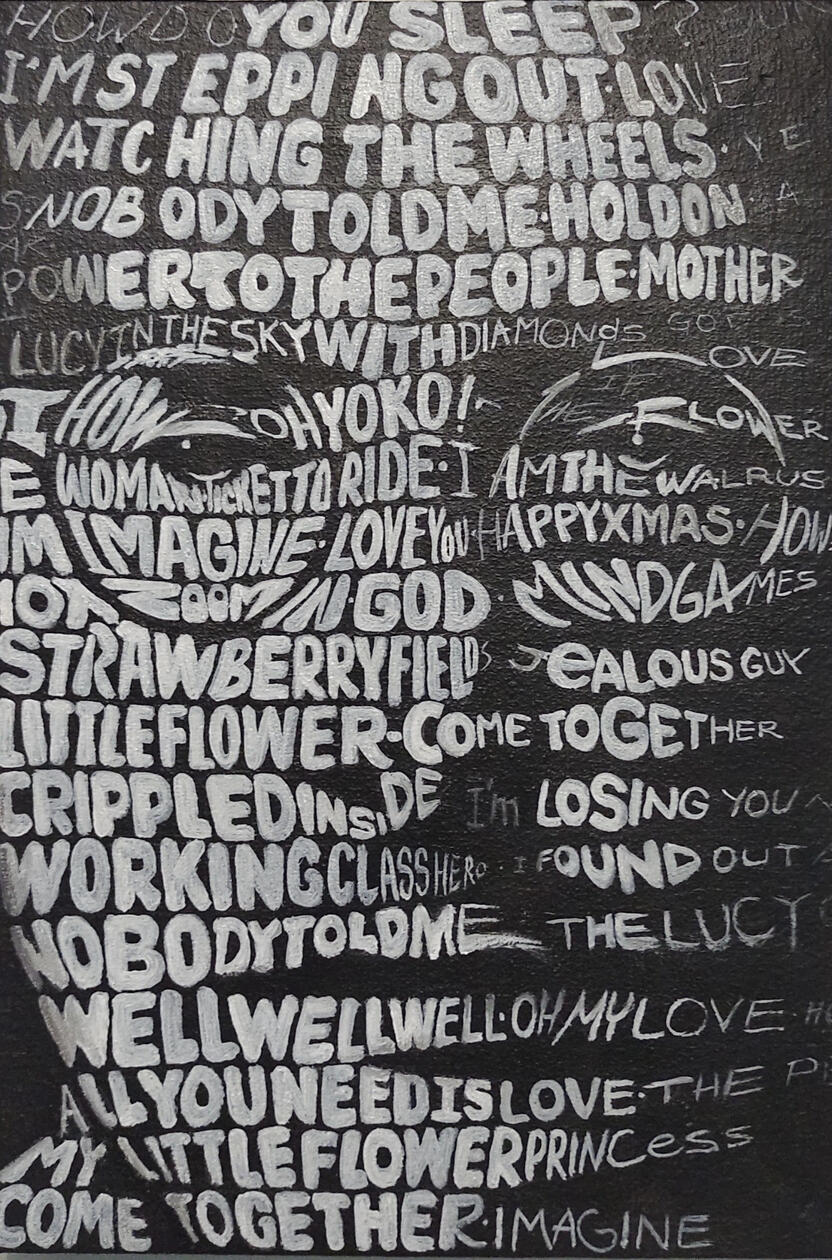 HOWDOYOU SLEEP?
I'M STEPPING OUT·LOVE
WATCHING THE WHEELS·YE
SNOBODYTOLDME·HOLDON A
POWERTOTHEPEOPLE·MOTHER
LUCYINTHESKYWITHDIAMONdS GOD
OVE
I HOW OHYOKO! FLOWER
E WOMAN·TICKETTORIDE·I AMTHEWALRUS
IM IMAGINE·LOVEYOU·HAPPYXMAS·HOW
NOT ZOOM IN·GOD·MINDGAMES
STRAWBERRYFIELDS JeALOUS GUY
LITTLEFLOWER·COME TOGETHER
CRIPPLEDINSiDE I'm LOSING YOU
WORKINGCLASSHERO·I FOUND OUT
NOBODYTOLDME THELUCY
WELLWELLWELL·OHMYLOVE·H
ALLYOUNEEDISLOVE·THE P
MY LITTLEFLOWERPRINCess
COME TOGETHER·IMAGINE